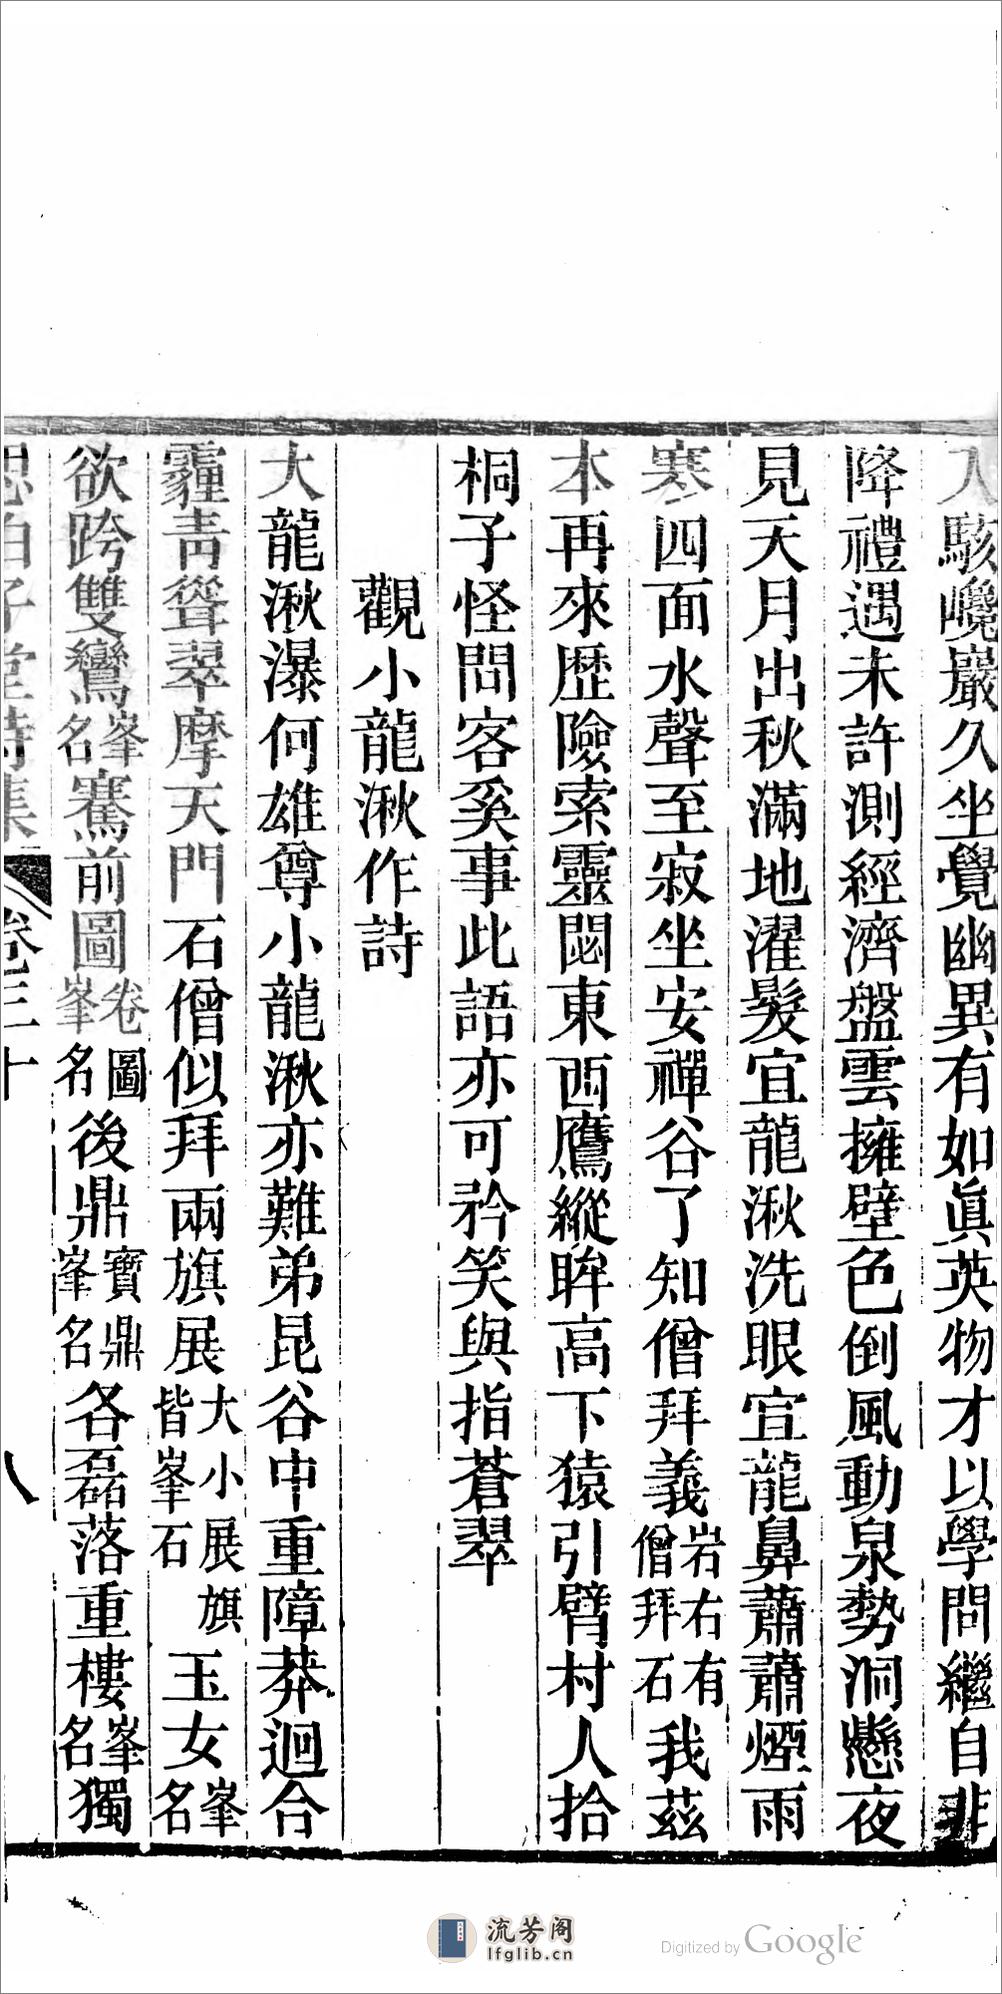 入駭巉巖久坐覺幽異有如眞英物才以學問繼自非
降禮遇未許測經濟盤雲擁壁色倒風動泉勢洞懸夜
見天月出秋滿地濯髮宜龍湫洗眼宜龍鼻蕭蕭煙雨
寒四面水聲至寂坐安禪谷了知僧拜義岩右有僧拜石我茲
本再來歷險索靈閟東西鷹縱眸高下猿引臂村人拾
桐子怪問客奚事此語亦可矜笑與指蒼翠
觀小龍湫作詩
大龍湫瀑何雄尊小龍湫亦難弟昆谷中重障莽迴合
霾靑聳翠摩天門石僧似拜兩旗展大小展旗皆峯石玉女峯名
欲跨雙鸞峯名騫前圖卷圖峯名後鼎寶鼎峯名各磊落重樓峯名獨
思伯子堂詩集 卷三十 八
流芳阁
lfglib.cn
Digitized by Google